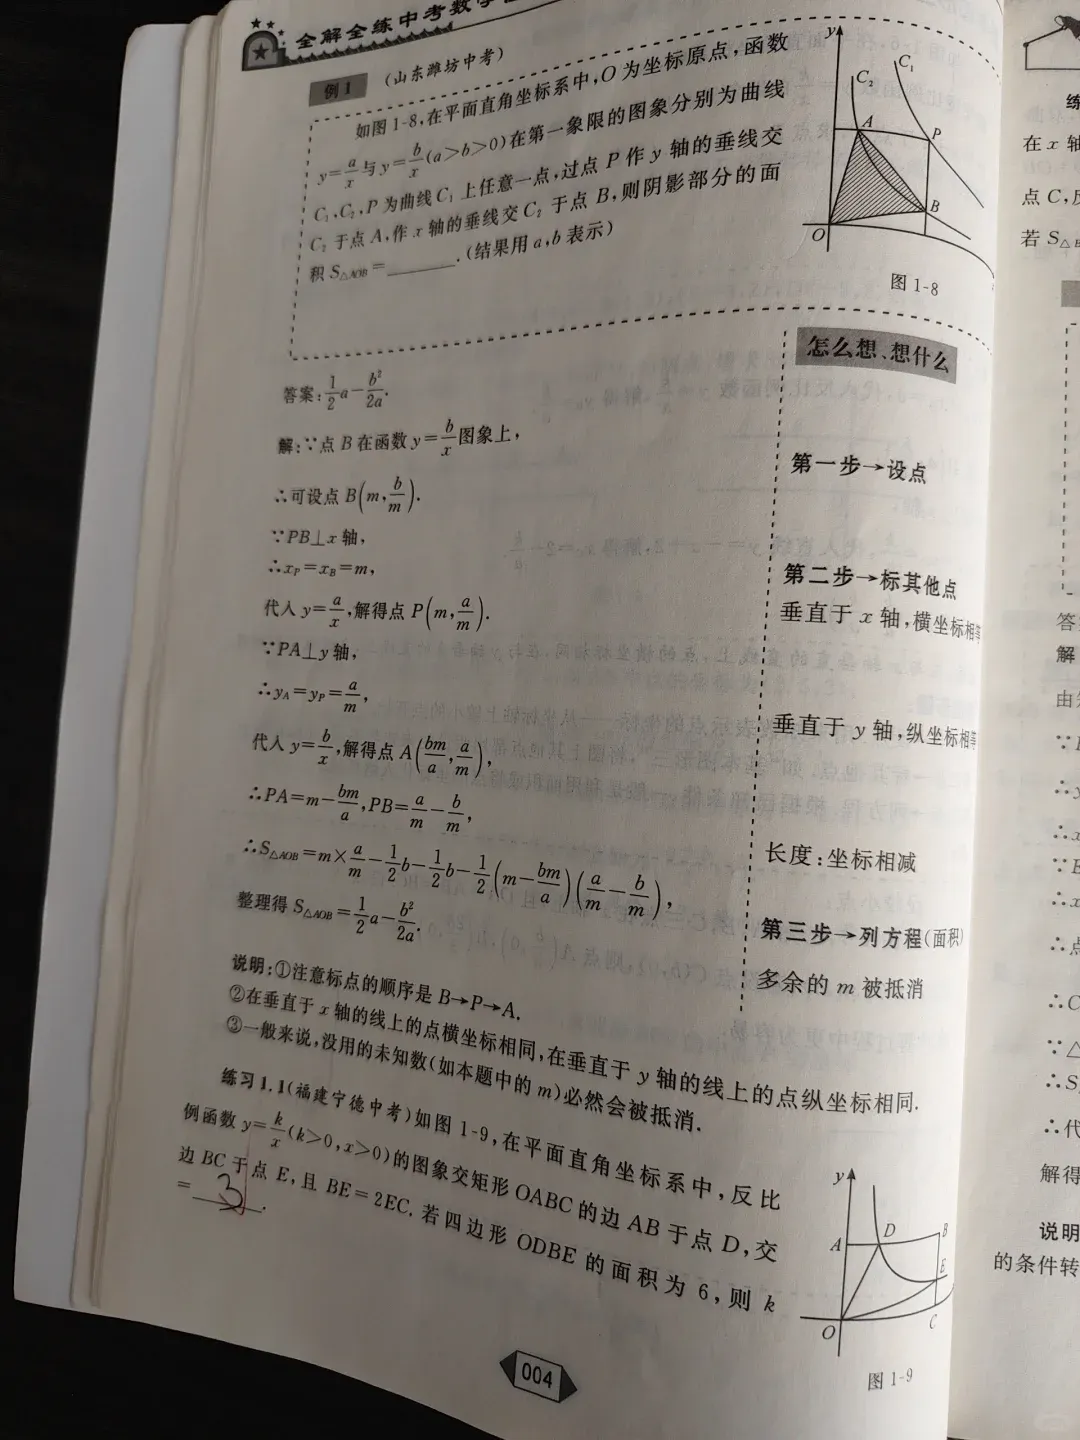 全解全练中考数学
例1 (山东潍坊中考)
如图1-8,在平面直角坐标系中,O为坐标原点,函数
y=a/x与y=b/x(a>b>0)在第一象限的图象分别为曲线
C₁,C₂,P为曲线C₁上任意一点,过点P作y轴的垂线交
C₂于点A,作x轴的垂线交C₂于点B,则阴影部分的面
积S△AOB=______.(结果用a,b表示)
y
C₂
C₁
A
P
B
O
图1-8
怎么想、想什么
答案:1/2a-b²/2a.
解:∵点B在函数y=b/x图象上,
第一步→设点
∴可设点B(m,b/m).
∵PB⊥x轴,
第二步→标其他点
∴xP=xB=m,
垂直于x轴,横坐标相等
代入y=a/x,解得点P(m,a/m).
∵PA⊥y轴,
∴yA=yP=a/m,
垂直于y轴,纵坐标相等
代入y=b/x,解得点A(bm/a,a/m),
∴PA=m-bm/a,PB=a/m-b/m,
长度:坐标相减
∴S△AOB=m×a/m-1/2b-1/2b-1/2(m-bm/a)(a/m-b/m),
第三步→列方程(面积)
整理得S△AOB=1/2a-b²/2a.
多余的m被抵消
说明:①注意标点的顺序是B→P→A.
②在垂直于x轴的线上的点横坐标相同,在垂直于y轴的线上的点纵坐标相同.
③一般来说,没用的未知数(如本题中的m)必然会被抵消.
练习1.1(福建宁德中考)如图1-9,在平面直角坐标系中,反比
例函数y=k/x(k>0,x>0)的图象交矩形OABC的边AB于点D,交
边BC于点E,且BE=2EC.若四边形ODBE的面积为6,则k
=3.
y
A
D
B
E
O
C
图1-9
004
练
在x轴
点C,反
若S△
答
解
由
∴点
∴代
解得
说明
的条件转